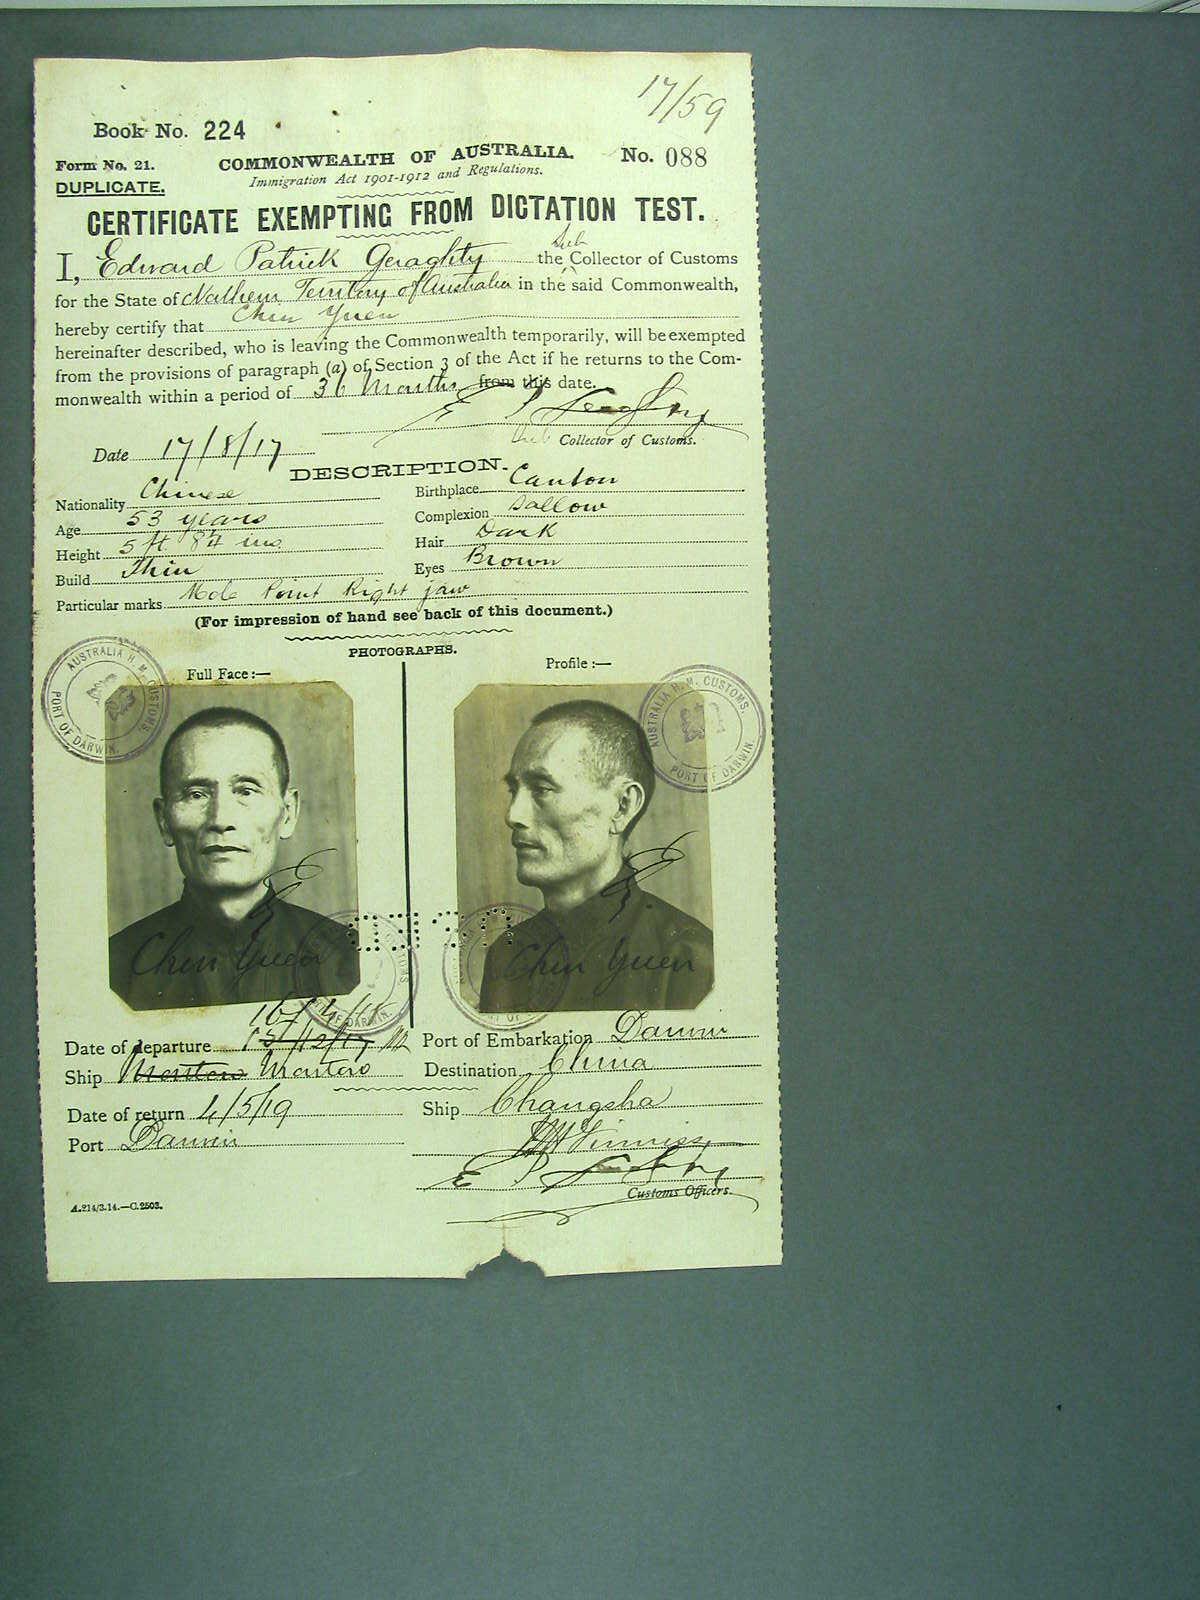 17/59
Book No. 224
Form No. 21. COMMONWEALTH OF AUSTRALIA. No. 088
DUPLICATE. Immigration Act 1901-1912 and Regulations.
CERTIFICATE EXEMPTING FROM DICTATION TEST.
I, Edward Patrick Geraghty the Sub Collector of Customs
for the State of Northern Territory of Australia in the said Commonwealth,
hereby certify that Chin Yuen
hereinafter described, who is leaving the Commonwealth temporarily, will be exempted
from the provisions of paragraph (a) of Section 3 of the Act if he returns to the Com-
monwealth within a period of 36 Months from this date.
E P Geraghty
Date 17/8/17 Sub Collector of Customs.
DESCRIPTION.
Nationality Chinese Birthplace Canton
Age 53 years Complexion Sallow
Height 5 ft 8¼ ins. Hair Dark
Build Thin Eyes Brown
Particular marks Mole Point Right jaw
(For impression of hand see back of this document.)
PHOTOGRAPHS.
Full Face :— Profile :—
AUSTRALIA H. M. CUSTOMS. PORT OF DARWIN.
AUSTRALIA H. M. CUSTOMS. PORT OF DARWIN.
Chin Yuen Chin Yuen
Date of departure Port of Embarkation Darwin
Ship Montoro Destination China
Date of return 4/5/19 Ship Changsha
Port Darwin
E P Geraghty
Customs Officers.
A.214/3.14.—C.2503.